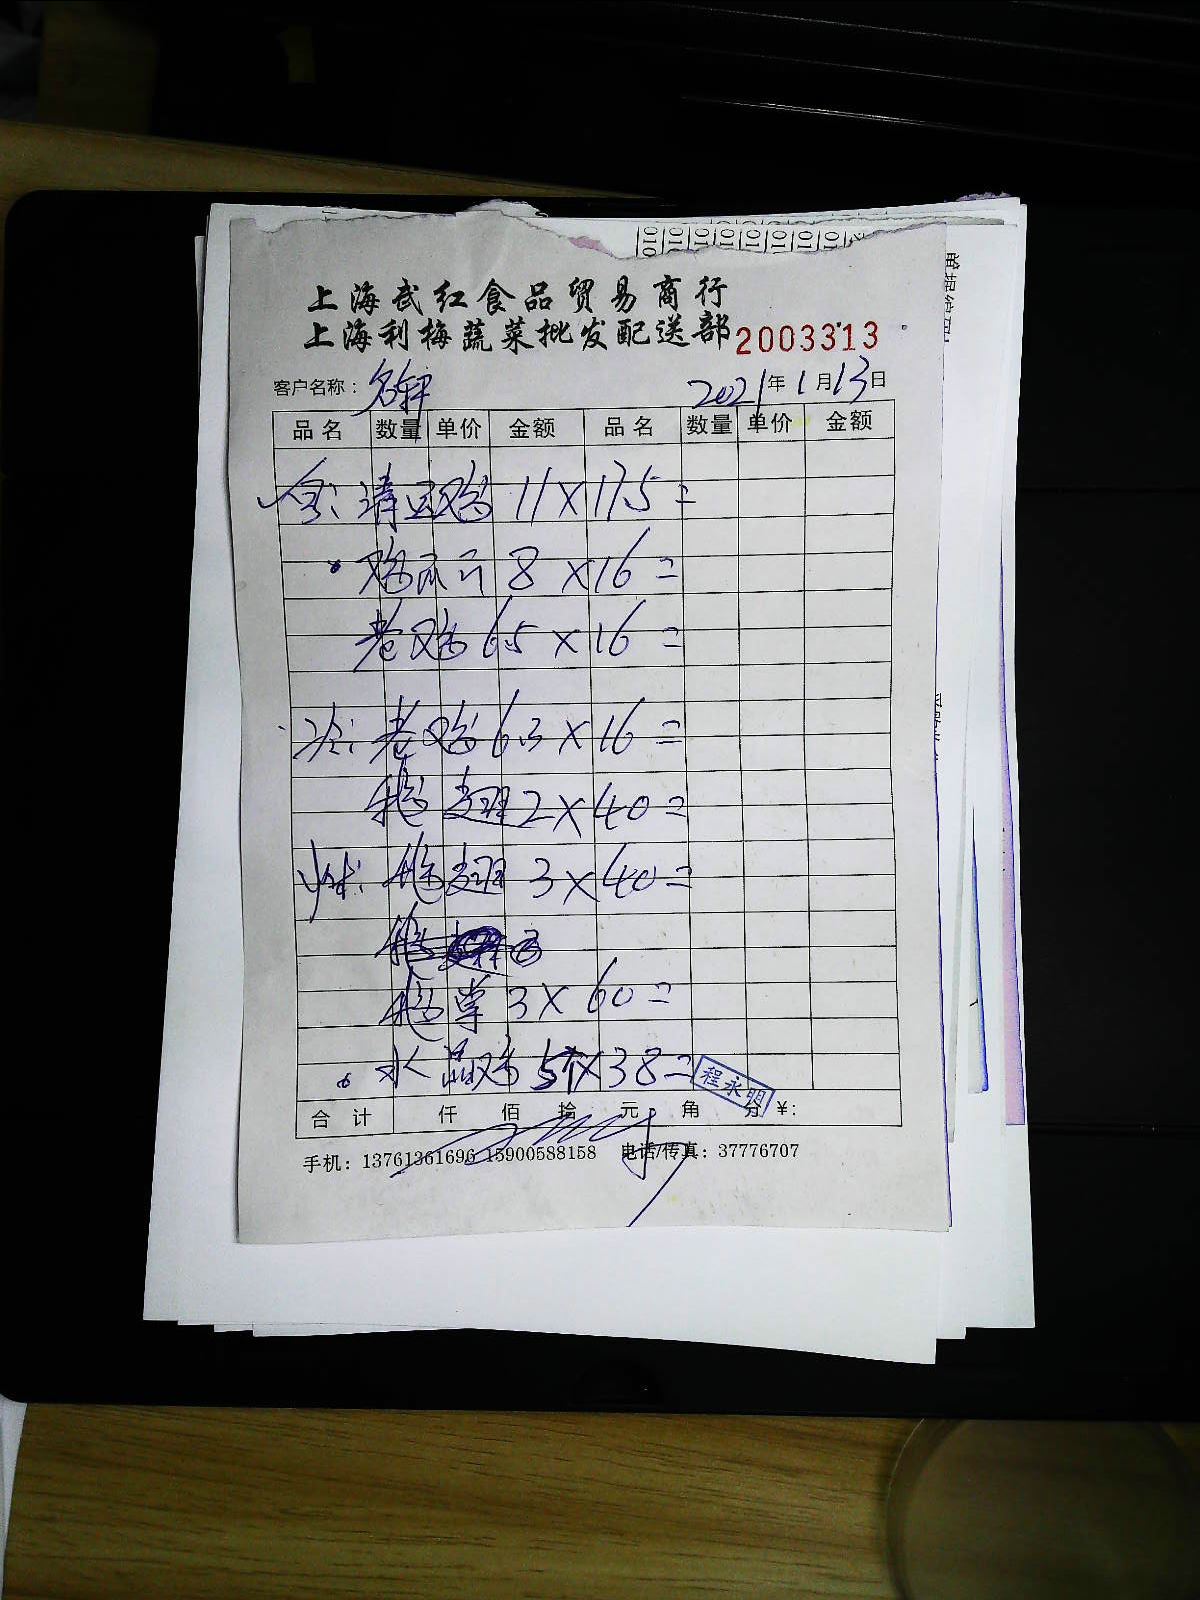 上海武红食品贸易商行
上海利梅蔬菜批发配送部 2003313
客户名称：名轩 2021年1月13日
品名 数量 单价 金额 品名 数量 单价 金额
清远鸡 11×17.5=
鸡 8×16=
老鸡 6.5×16=
冷：老鸡 6.3×16=
鹅翅 2×40=
鹅翅 3×40=
鹅掌 3×60=
水晶鸡 5个×38=
程永明
合计 仟 佰 拾 元 角 分 ¥：
手机：13761361696 15900588158 电话/传真：37776707